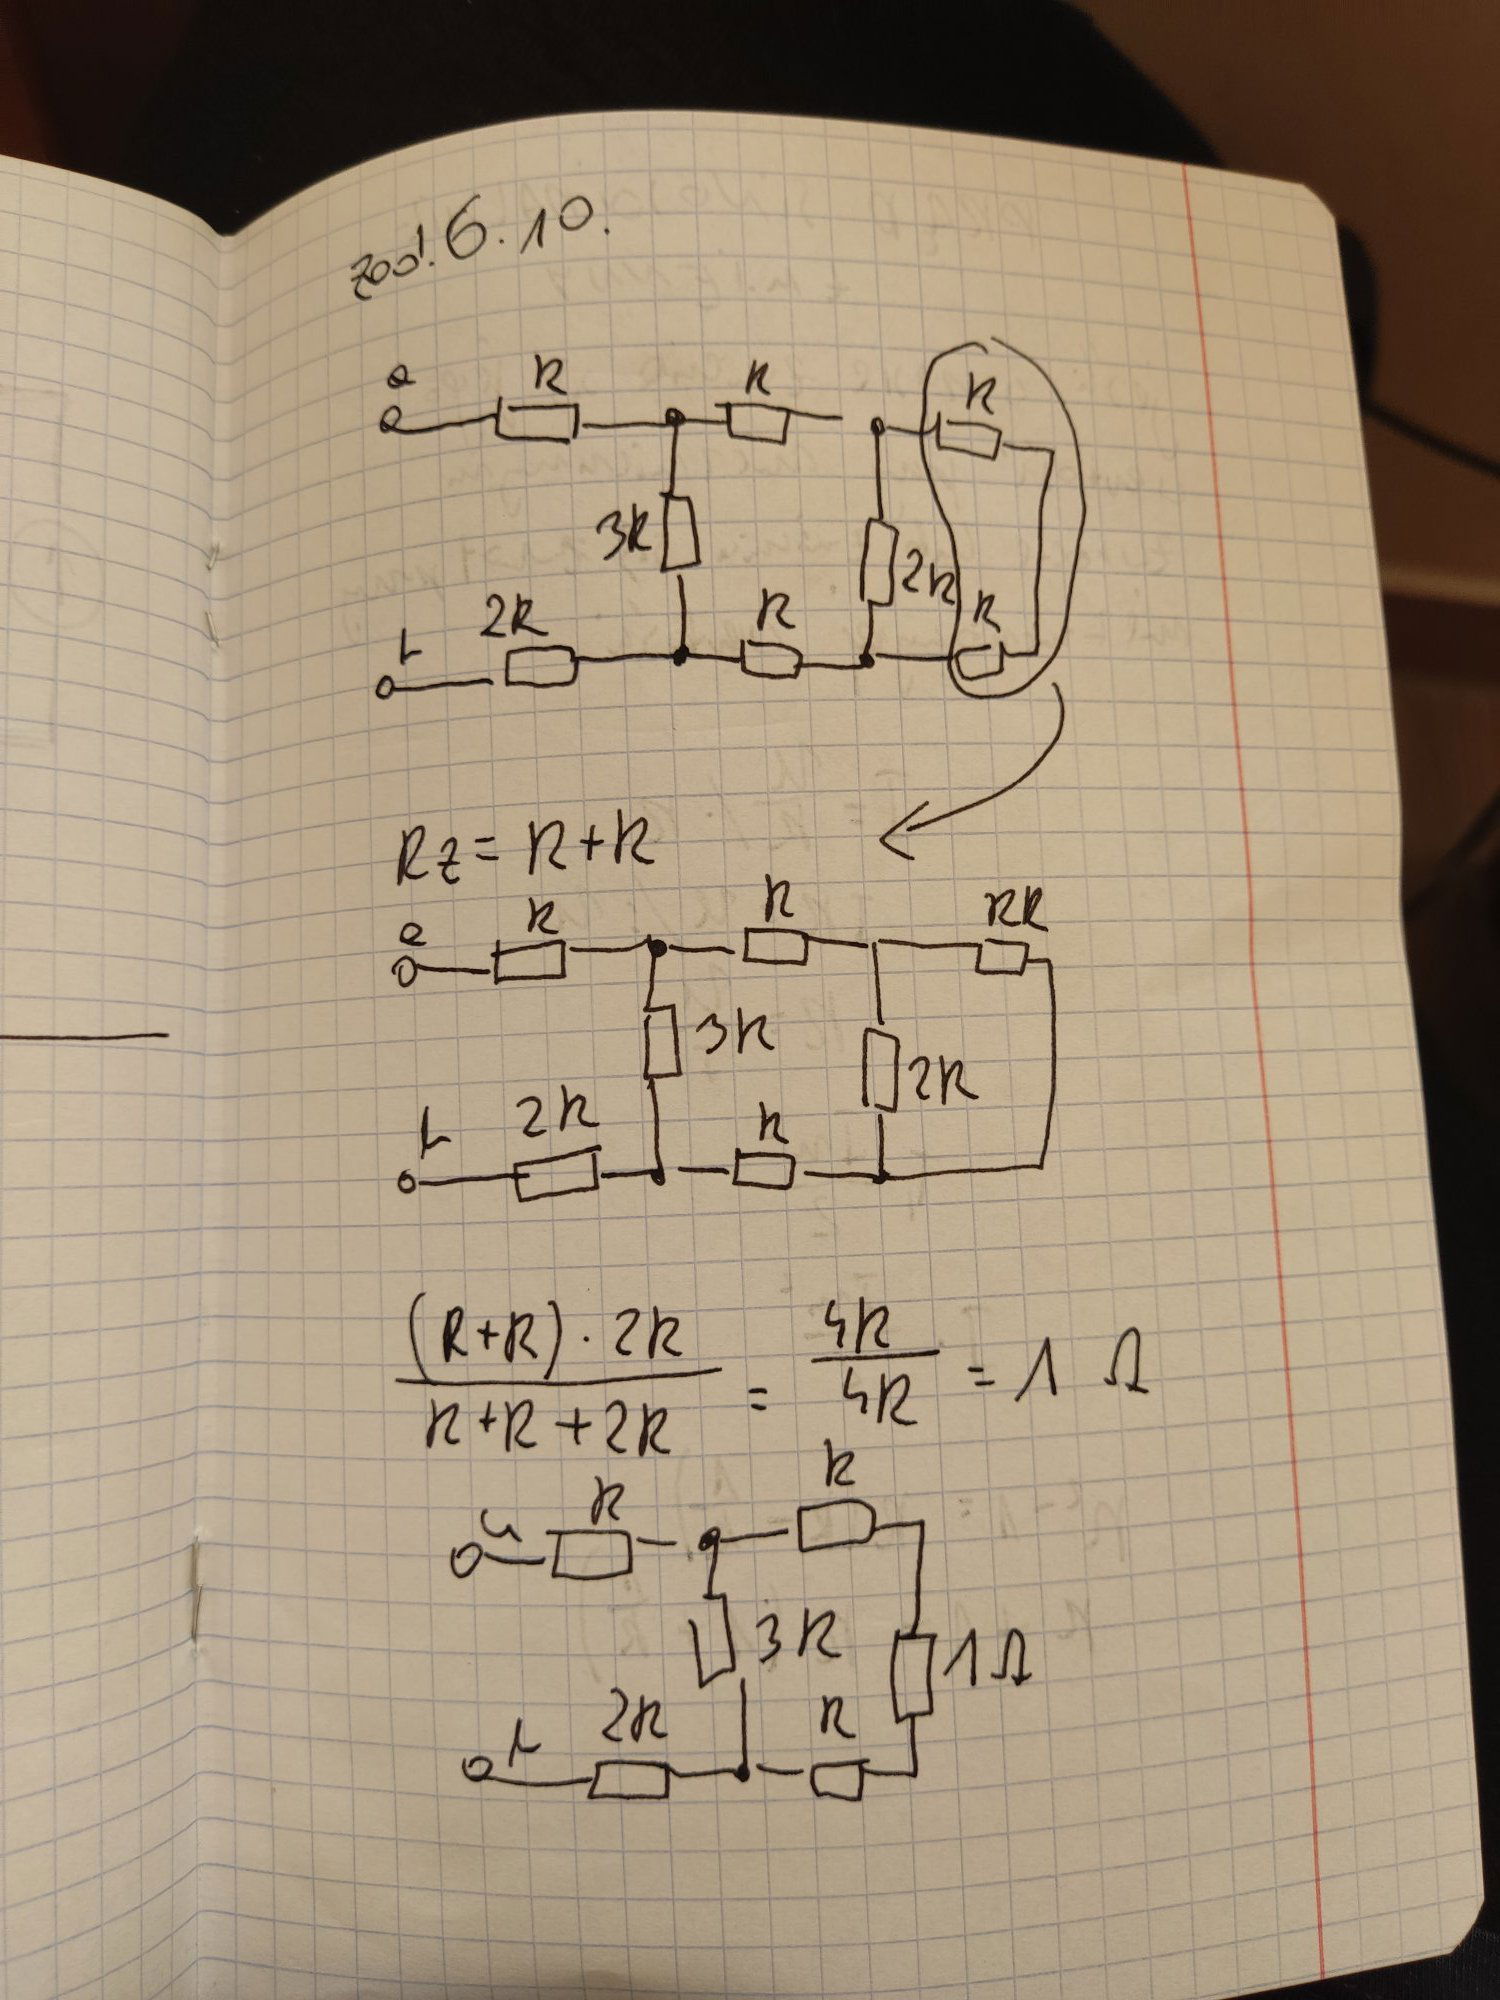 zad. 6.10.
a R R R
3R 2R
b 2R R R
Rz = R+R
a R R RR
3R 2R
b 2R R
(R+R) · 2R / R+R+2R = 4R / 4R = 1 Ω
a R R
3R 1Ω
b 2R R